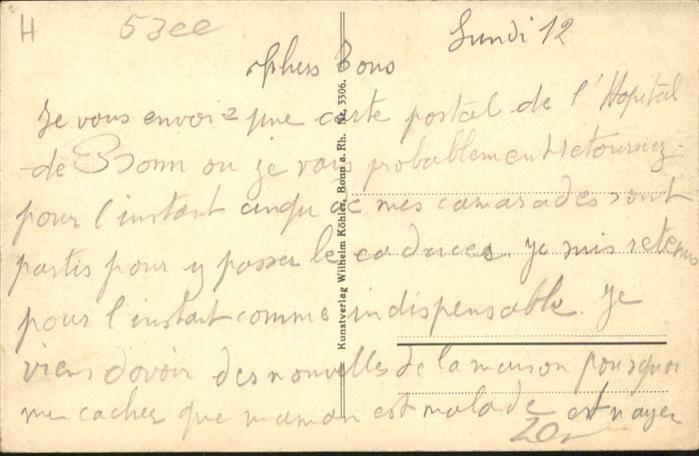 H 53ee
Lundi 12
chers Tous
Je vous envoie une carte postal de l'Hopital
de Bonn ou je vais probablement retournez.
pour l'instant cinqu de mes camarades sont
partis pour y passer le caducee. je suis retenus
pour l'instant comme indispensable. Je
viens d'avoir des nouvelles de la maison pourquoi
me cacher que maman est malade et
20
Kunstverlag Wilhelm Köhler, Bonn a. Rh. Nr. 3306.